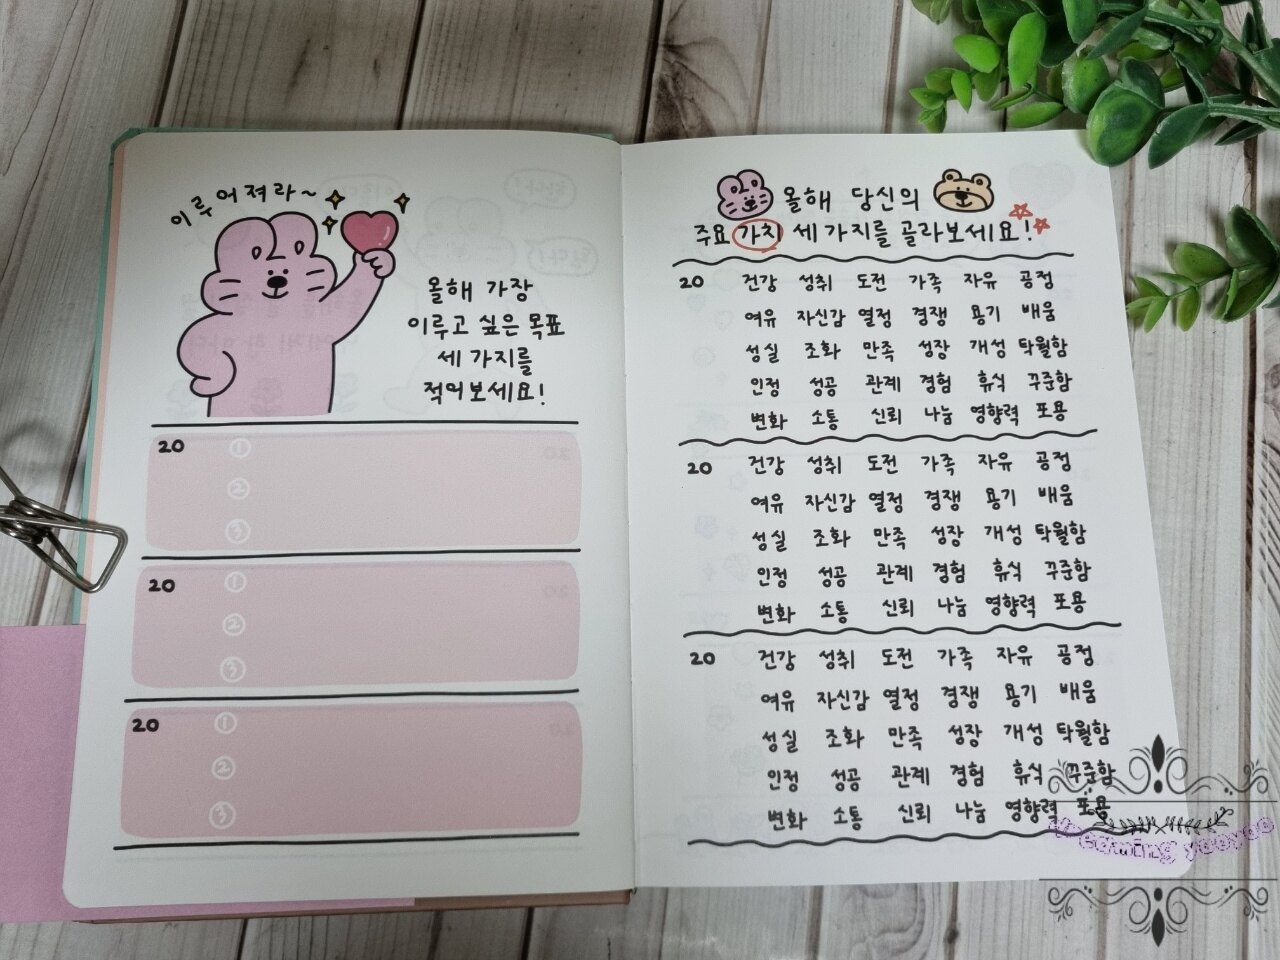 이루어져라~
올해 가장
이루고 싶은 목표
세 가지를
적어보세요!
20 ①
②
③
20 ①
②
③
20 ①
②
③
올해 당신의
주요 가치 세 가지를 골라보세요!
20 건강 성취 도전 가족 자유 공정
여유 자신감 열정 경쟁 용기 배움
성실 조화 만족 성장 개성 탁월함
인정 성공 관계 경험 휴식 꾸준함
변화 소통 신뢰 나눔 영향력 포용
20 건강 성취 도전 가족 자유 공정
여유 자신감 열정 경쟁 용기 배움
성실 조화 만족 성장 개성 탁월함
인정 성공 관계 경험 휴식 꾸준함
변화 소통 신뢰 나눔 영향력 포용
20 건강 성취 도전 가족 자유 공정
여유 자신감 열정 경쟁 용기 배움
성실 조화 만족 성장 개성 탁월함
인정 성공 관계 경험 휴식 꾸준함
변화 소통 신뢰 나눔 영향력 포용